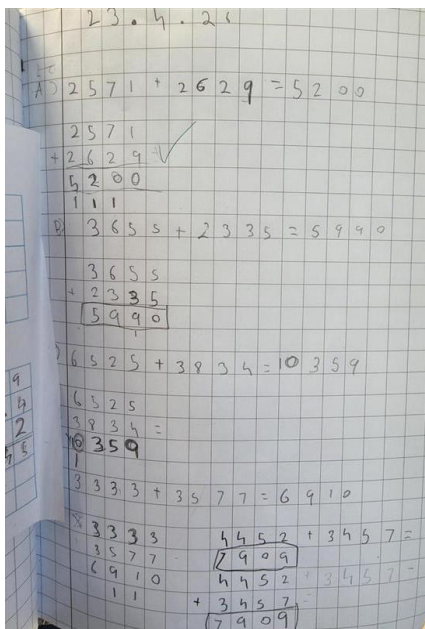 23.4.26
A) 2571 + 2629 = 5200
2571
+ 2629
5200
111
B) 3655 + 2335 = 5990
3655
+ 2335
5990
1
) 6525 + 3834 = 10359
6525
3834 =
10359
1
3333 + 3577 = 6910
3333
3577
6910
11
4452 + 3457 =
7909
4452 + 3457 =
+ 3457
7909
9
4
2